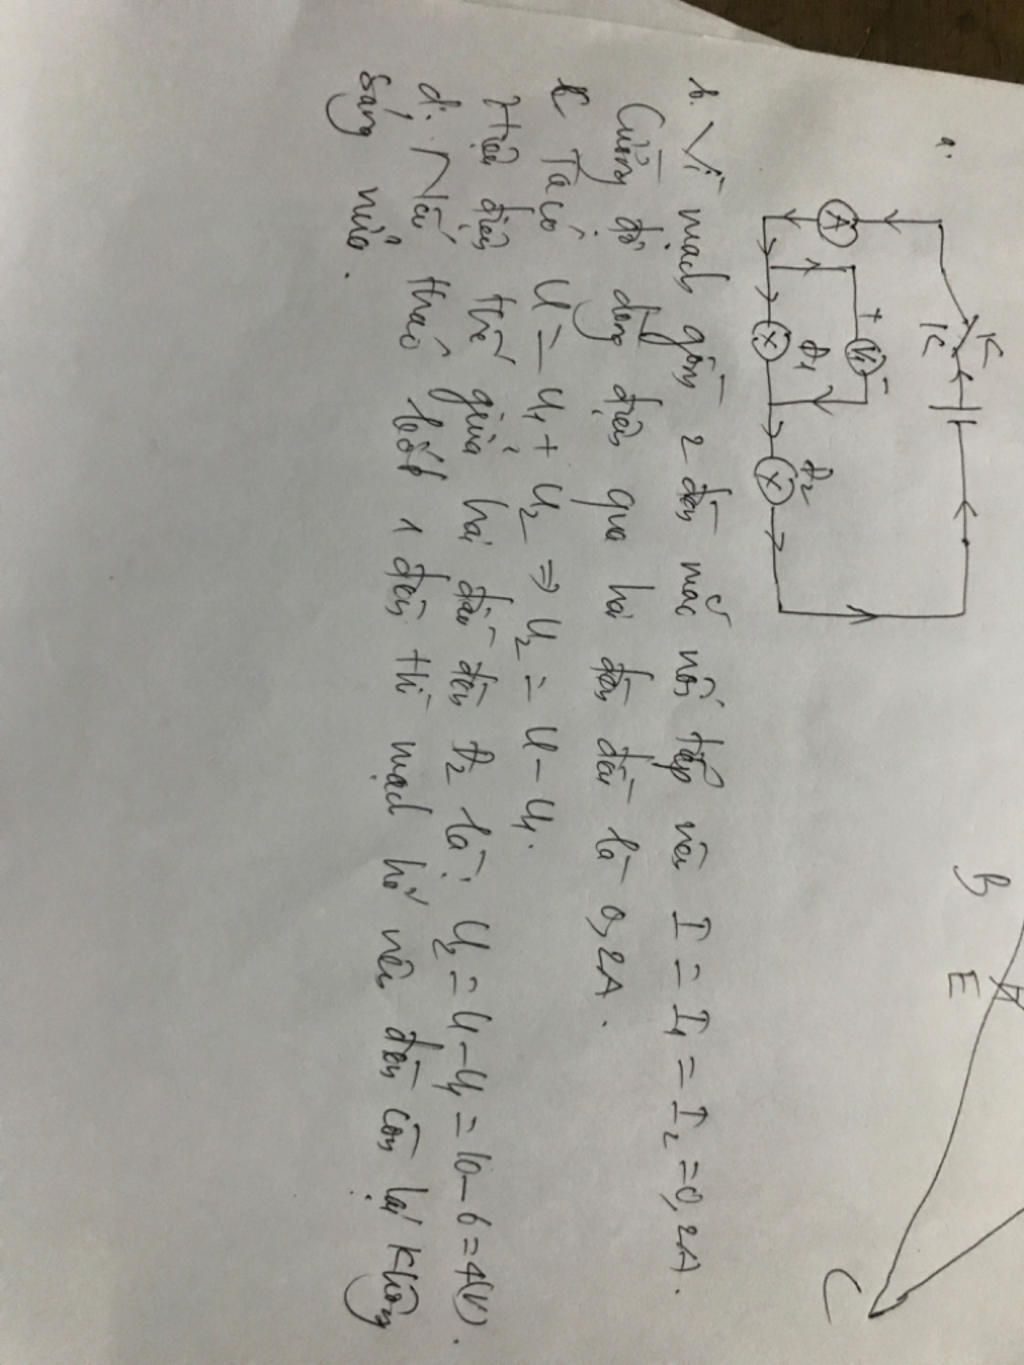 a.
K
K
A
+ V₁ -
Đ₁
Đ₂
X
X
b. Vì mạch gồm 2 đèn mắc nối tiếp nên I = I₁ = I₂ = 0,2A.
Cường độ dòng điện qua hai đèn đều là 0,2A.
c Ta có: U = U₁ + U₂ => U₂ = U - U₁.
Hiệu điện thế giữa hai đầu đèn Đ₂ là: U₂ = U - U₁ = 10 - 6 = 4(V).
d. Nếu tháo bớt 1 đèn thì mạch hở nên đèn còn lại không
sáng nữa.
B
E
C